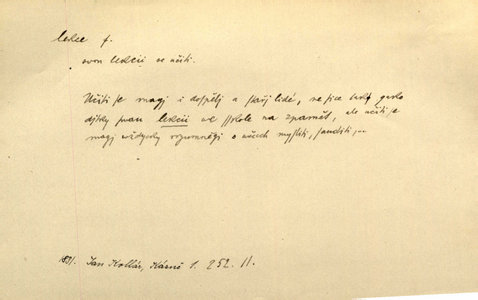 lekce f.
svou lekcii se učiti.
Učiti se magj i dospělj a starj lidé, ne sice tak gako
djtky swau lekcii we sskole na zpaměť, ale učiti se
magj wždycky rozumněgi o wěcech mysliti, saudití,...
1831. Jan Kollár, Kázně 1. 252. 11.